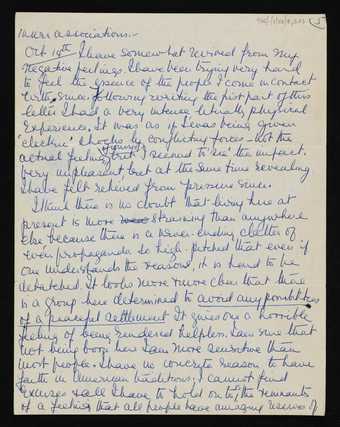 inner associations.-
Oct 19th I have somewhat revived from my
negative feelings. I have been trying very hard
to feel the essence of the people I come in contact
with. Since following writing the first part of this
letter I had a very intense literally physical
experience. It was as if I was being given
'electric' shocks by conflicting forces - not the
actual feeling, but I seemed to 'see' the impact.
Very unpleasant, but at the same time revealing
I have felt relieved from pressure since.
I think there is no doubt that living here at
present is more straining than anywhere
else because there is a never-ending chatter of
even propaganda so high-pitched that even if
one understands the reasons, it is hard to be
detached. It looks more & more clear that there
is a group here determined to avoid any possibilities
of a peaceful settlement. It gives one a horrible
feeling of being rendered helpless. I am sure that
not being born here I am more sensitive than
most people. I have no concrete reason to have
faith in American traditions; I cannot find
excuses & all I have to hold on to, the remnants
of a feeling that all people have amazing reserves of